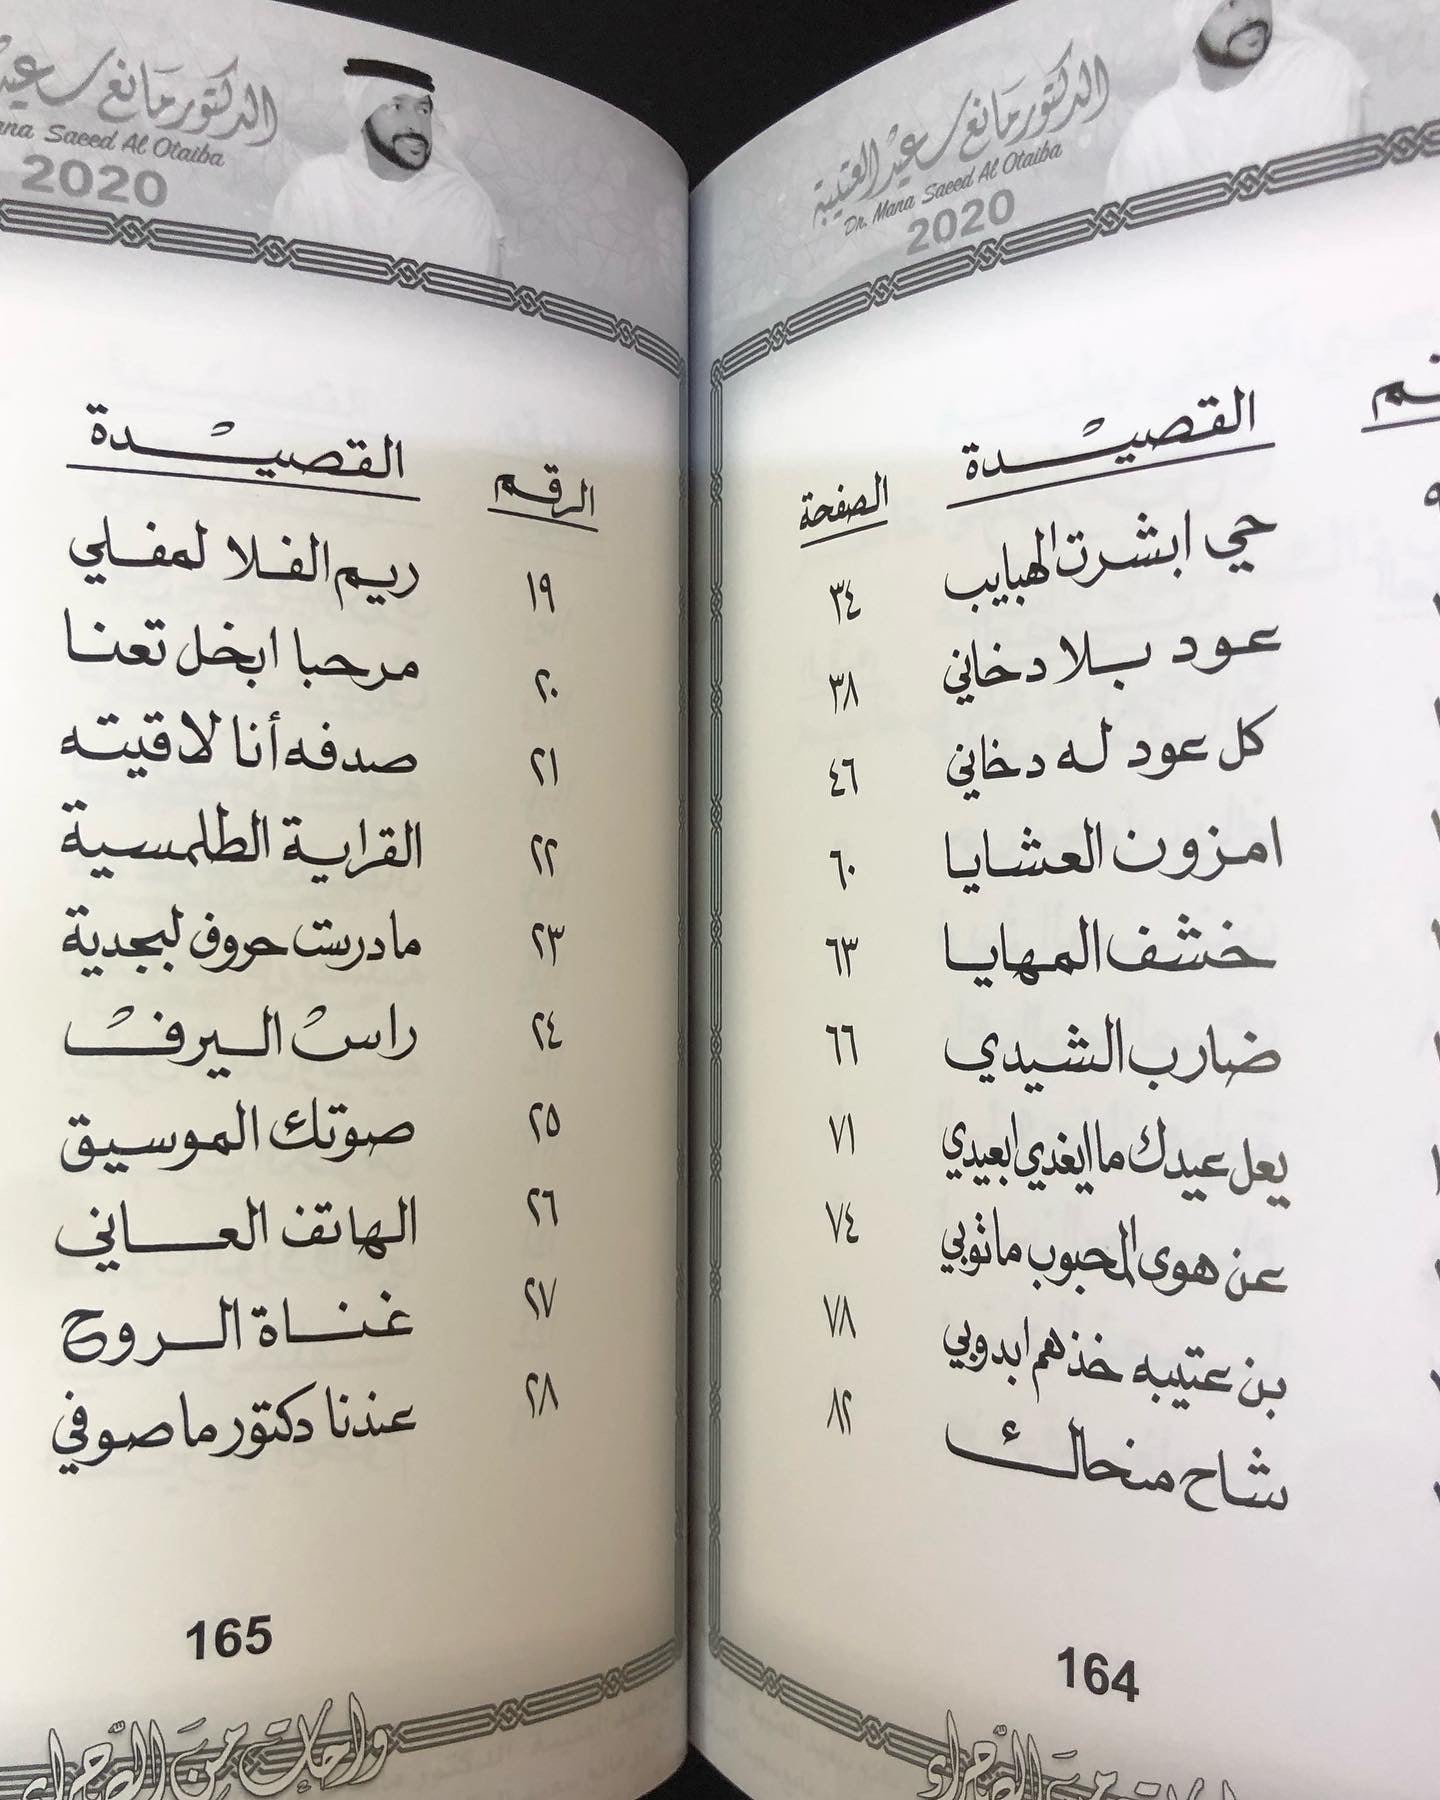 الدكتور مانع سعيد العتيبة
Dr. Mana Saeed Al Otaiba
2020
القصيدة الصفحة
حي ابشرت الهبايب ٣٤
عود بلا دخاني ٣٨
كل عود له دخاني ٤٦
امزون العشايا ٦٠
خشف المهايا ٦٣
ضارب الشيدي ٦٦
يعل عيدك ما ايغدي ابعيدي ٧١
عن هوى المحبوب ماتوبي ٧٤
بن عتيبه خذهم ابدوبي ٧٨
شاح منحالك ٨٢
164
الدكتور مانع
Saeed Al Otaiba
2020
الرقم القصيدة
١٩ ريم الفلا لمفلي
٢٠ مرحبا ابخل تعنا
٢١ صدفه أنا لاقيته
٢٢ القراية الطلمسية
٢٣ مادرست حروف لبجدية
٢٤ راس اليرف
٢٥ صوتك الموسيق
٢٦ الهاتف العاني
٢٧ غناة الروح
٢٨ عندنا دكتور ماصوفي
165
واحات من الصحراء